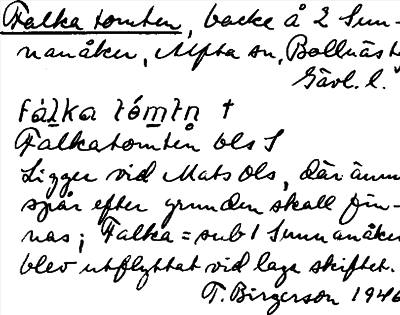 Falka tomten, backe å 2 Sun-
nanåker, Alfta sn, Bollnäs t
Gävl. l.
fálka tómtn †
Falkatomten bls 1
Ligger vid Mats Ols, där ännu
spår efter grunden skall fin-
nas; Falka = sub 1 Sunnanåker
blev utflyttat vid laga skiftet.
T. Birgerson 1946